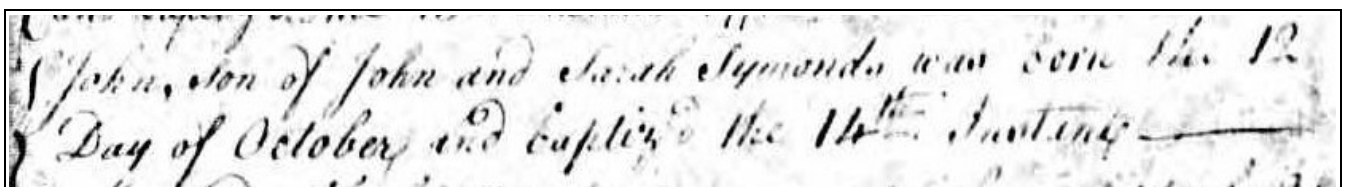 John, son of John and Sarah Symonds was born the 12
Day of October, and baptiz'd the 14th Instant